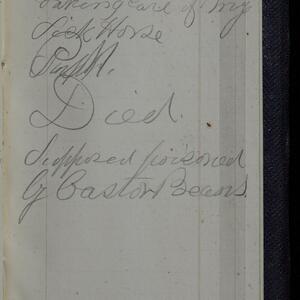 taking care of my
Sick Horse
Died.
Supposed poisoned
By Castor Beans.